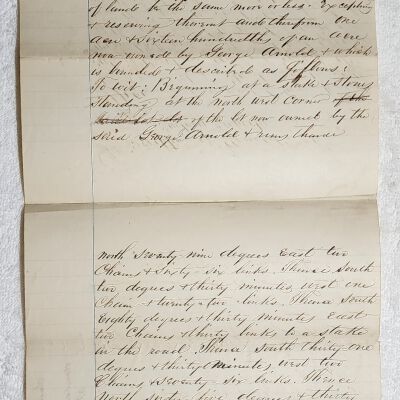 of lands be the same more or less. Excepting
& reserving thereout and therefrom one
acre & Sixteen hundredths of an acre
now owned by George Arnold & which
is bounded & described as follows:
To wit: Beginning at a stake & Stones
Standing at the north west corner of the
of the lot now owned by the
said George Arnold & runs thence
north Seventy nine degrees East two
Chains & Sixty-Six links. Thence South
two degrees & thirty minutes, west one
Chain & twenty-two links. Thence South
Eighty degrees & thirty minutes East
two Chains & thirty links to a stake
in the road. Thence South thirty-one
degrees & thirty minutes west two
Chains & Seventy-Six links. Thence
north Sixty five degrees & thirty